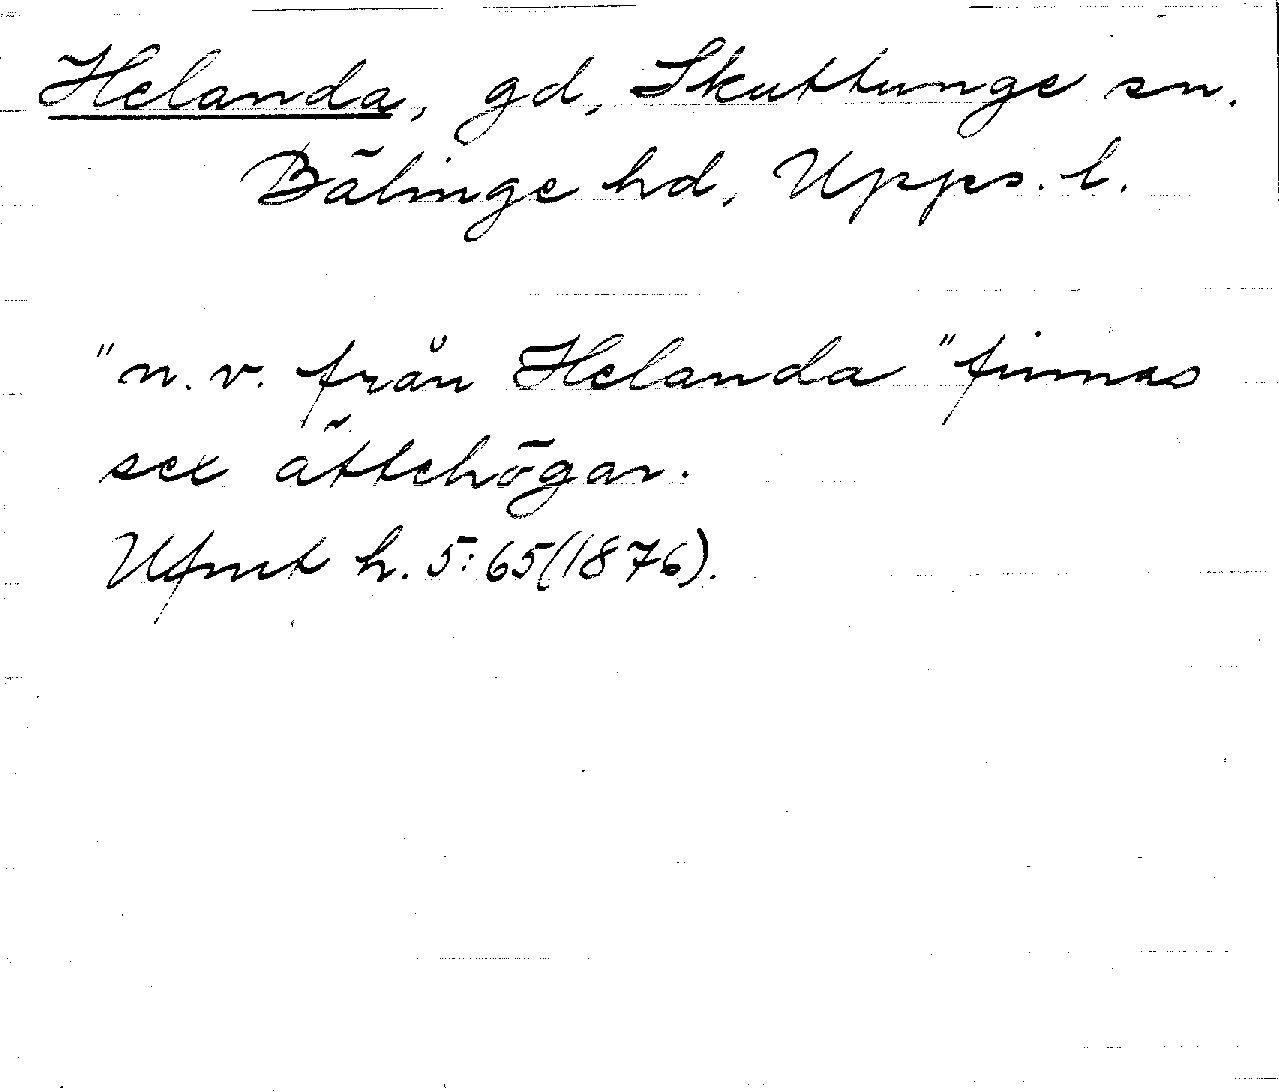 Helanda, gd, Skuttunge sn.
Bälinge hd, Upps. l.
"n.v. från Helanda" finnas
sex ättehögar.
Ufmt h. 5:65(1876).